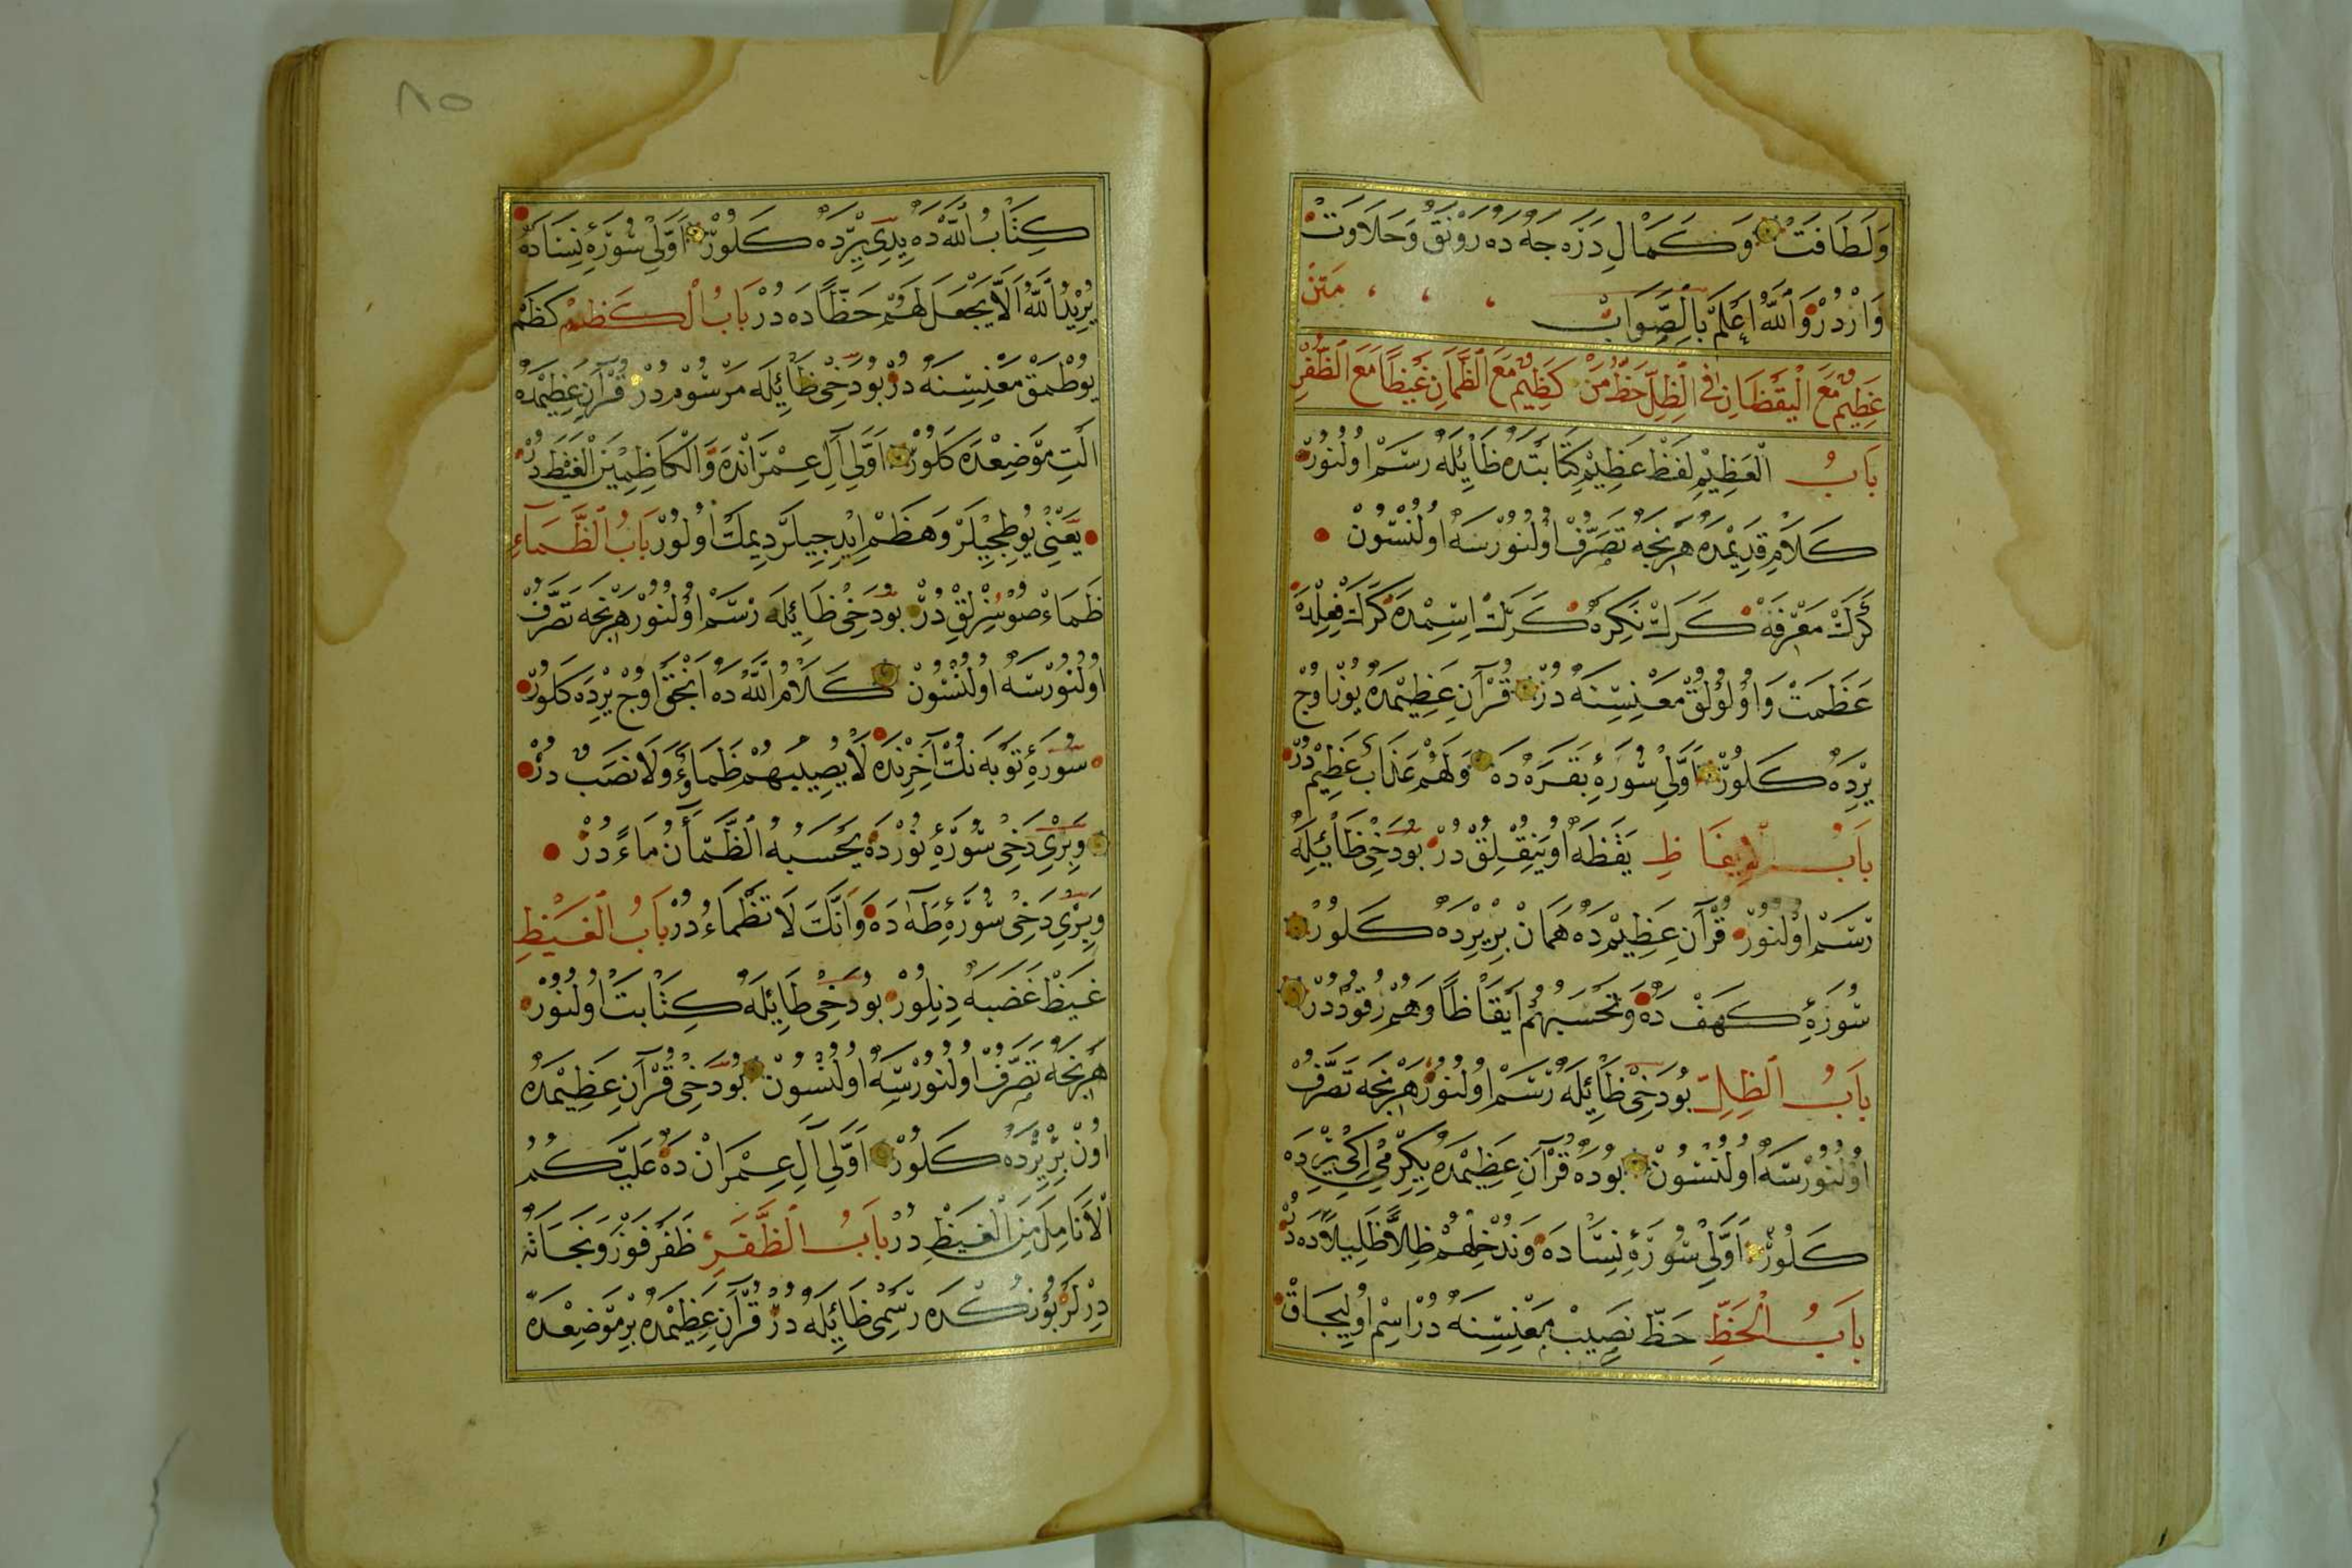 وَلَطَافَتْ وَكَمَالِ دَرَجَه دَه رَوْنَقْ وَحَلَاوَتْ
وَارْدُرْ وَاللّٰهُ اَعْلَمُ بِالصَّوَابْ مَتِنْ
عَظِيمٌ مَعَ الْيَقْظَانِ فِى الظِّلِّ حَظُّ مَنْ كَظِيمٌ مَعَ الظَّمْاٰنِ غَيْظًا مَعَ الظُّفْرِ
بَابُ الْعَظِيْمِ لَفْظِ عَظِيْمْ كِتَابَتْدَه ظَائِلَه رَسْم اُولُنُورْ
كَلَامِ قَدِيْمْدَه هَرْ نِجَه تَصَرُّفْ اُولُنُورْسَه اُولُنْسُونْ
كَرَكْ مَعْرِفَه كَرَكْ نَكِرَه كَرَكْ اِسِمْدَه كَرَكْ فِعِلْدَه
عَظَمَتْ وَاُولُولُقْ مَعْنِسِنَه دُرْ قُرْآنِ عَظِيْمْدَه يُوزْ اُوچْ
يِرْدَه كَلُورْ اَوَّلِى سُورَۀِ بَقَرَه دَه وَلَهُمْ عَذَابٌ عَظِيْمٌ دُرْ
بَابُ الْاِيقَاظِ يَقَظَه اُويَنِقْلِقْ دُرْ بُودَخِى ظَائِلَه
رَسْم اُولُنُورْ قُرْآنِ عَظِيْمْدَه هَمَانْ بِرْ يِرْدَه كَلُورْ
سُورَۀِ كَهَفْ دَه وَتَحْسَبُهُمْ اَيْقَاظًا وَهُمْ رُقُودٌ دُرْ
بَابُ الظِّلِّ بُودَخِى ظَائِلَه رَسْم اُولُنُورْ هَرْ نِجَه تَصَرُّفْ
اُولُنُورْسَه اُولُنْسُونْ بُودَه قُرْآنِ عَظِيْمْدَه يِكِرْمِى اِكِى يِرْدَه
كَلُورْ اَوَّلِى سُورَۀِ نِسَادَه وَنُدْخِلُهُمْ ظِلًّا ظَلِيلًا دَه دُرْ
بَابُ الْحَظِّ حَظّ نَصِيبْ مَعْنِسِنَه دُرْ اِسِمْ اُولِيجَاقْ
كِتَابُ اللّٰه دَه يِدِى يِرْدَه كَلُورْ اَوَّلِى سُورَۀِ نِسَادَه
يُرِيْدُ اللّٰهُ اَلَّا يَجْعَلَ لَهُمْ حَظًّا دَه دُرْ بَابُ الْكَظِمِ كَظَمْ
يُوطْمَقْ مَعْنِسِنَه دُرْ بُودَخِى ظَائِلَه مَرْسُوْمدُرْ قُرْآنِ عَظِيْمْدَه
اَلْتِ مَوْضِعْدَه كَلُورْ اَوَّلِى آلِ عِمْرَانْدَه وَالْكَاظِمِيْنَ الْغَيْظَ دُرْ
يَعْنِى يُوطِجِيلَرْ وَهَظَمْ اِيْدِجِيلَرْ دِيمَكْ اُولُورْ بَابُ الظَّمَآءِ
ظَمَاءْ صُوْسُزْلِقْ دُرْ بُودَخِى ظَائِلَه رَسْم اُولُنُورْ هَرْ نِجَه تَصَرُّفْ
اُولُنُورْسَه اُولُنْسُونْ كَلَامُ اللّٰه دَه اَنْجَقْ اُوچْ يِرْدَه كَلُورْ
سُورَۀِ تَوْبَه نِكْ آخِرِنْدَه لَا يُصِيبُهُمْ ظَمَاءٌ وَلَا نَصَبٌ دُرْ
وَبِرِى دَخِى سُورَۀِ نُورْدَه يَحْسَبُهُ الظَّمْأٰنُ مَاءً دُرْ
وَبِرِى دَخِى سُورَۀِ طٰهٰ دَه وَاَنَّكَ لَا تَظْمَاءُ دُرْ بَابُ الْغَيْظِ
غَيْظْ غَضَبَه دِنِلُورْ بُودَخِى ظَائِلَه كِتَابَتْ اُولُنُورْ
هَرْ نِجَه تَصَرُّفْ اُولُنُورْسَه اُولُنْسُونْ بُودَخِى قُرْآنِ عَظِيْمْدَه
اُونْ بِرْ يِرْدَه كَلُورْ اَوَّلِى آلِ عِمْرَانْ دَه عَلَيْكُمُ
الْاَنَامِلَ مِنَ الْغَيْظِ دُرْ بَابُ الظَّفَرِ ظَفَرْ فَوْزْ وَنَجَاتَه
دِرْلَرْ بُونُكْدَه رَسْمِى ظَائِلَه دُرْ قُرْآنِ عَظِيْمْدَه بِرْ مَوْضِعْدَه
٨٥